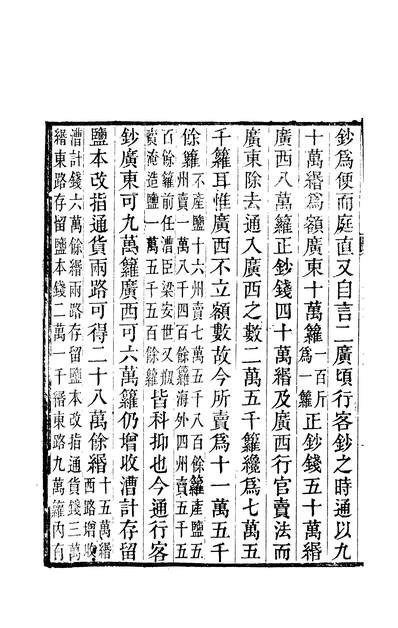 鈔爲便而庭直又自言二廣頃行客鈔之時通以九
十萬緡爲額廣東十萬籮一百斤爲一籮正鈔錢五十萬緡
廣西八萬籮正鈔錢四十萬緡及廣西行官賣法而
廣東除去通入廣西之數二萬五千籮纔爲七萬五
千籮耳惟廣西不立額數故今所賣爲十一萬五千
餘籮不產鹽十六州賣七萬五千八百餘籮產鹽五州賣一萬八千四百餘籮海外四州賣五千五
百餘籮前任漕臣梁安世又賣淹造鹽一萬五千五百餘籮皆科抑也今通行客
鈔廣東可九萬籮廣西可六萬籮仍增收漕計存留
鹽本改指通貨兩路可得二十八萬餘緡十五萬緡西路增收
漕計錢六萬餘緡兩路存留鹽本改指通貨錢三萬緡東路存留鹽本錢二萬一千緡東路九萬籮內有